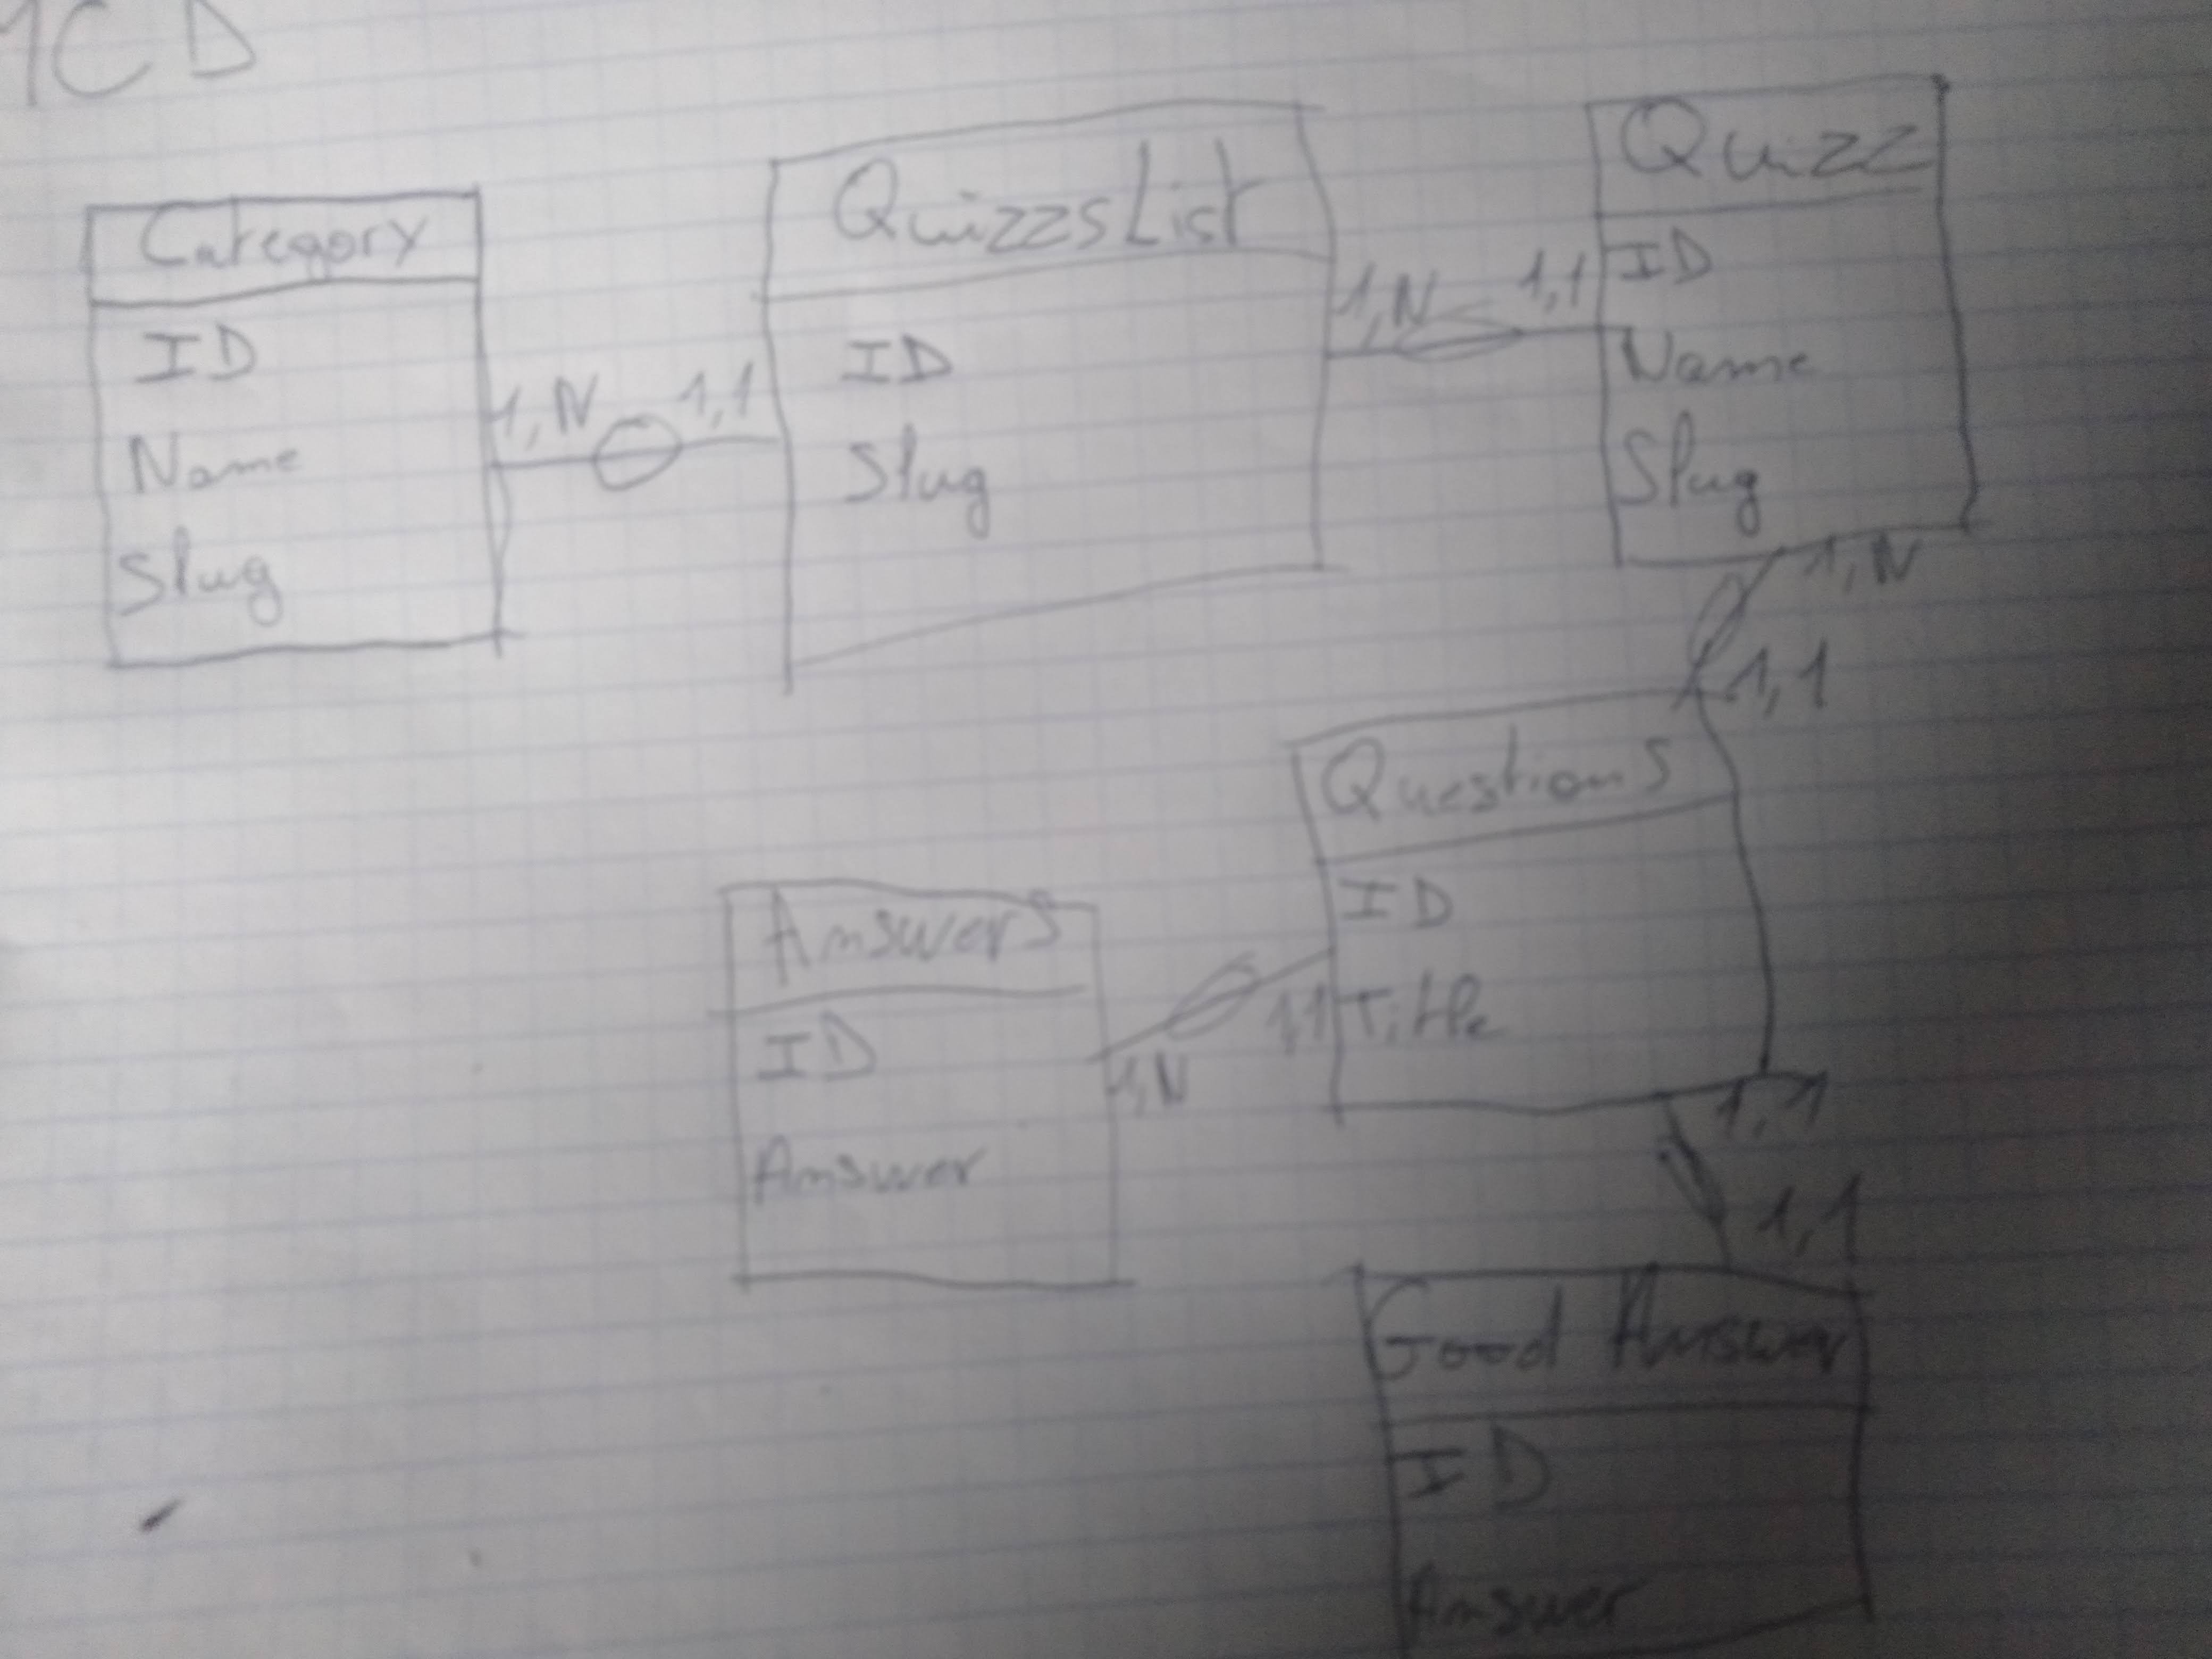 MCD
Category
ID
Name
Slug
1,N
1,1
QuizzsList
ID
Slug
1,N
1,1
Quizz
ID
Name
Slug
1,N
1,1
Questions
ID
Title
1,1
1,N
Answers
ID
Answer
1,1
1,1
Good Answer
ID
Answer